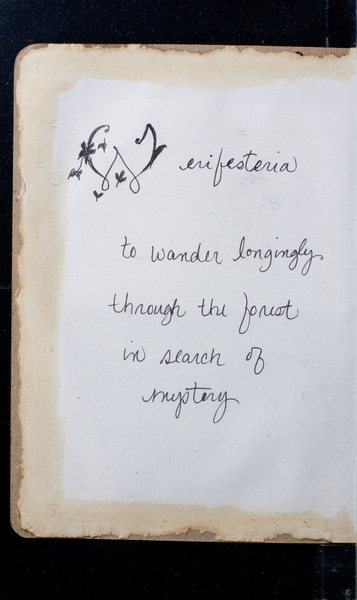 Werifesteria
to wander longingly
through the forest
in search of
mystery